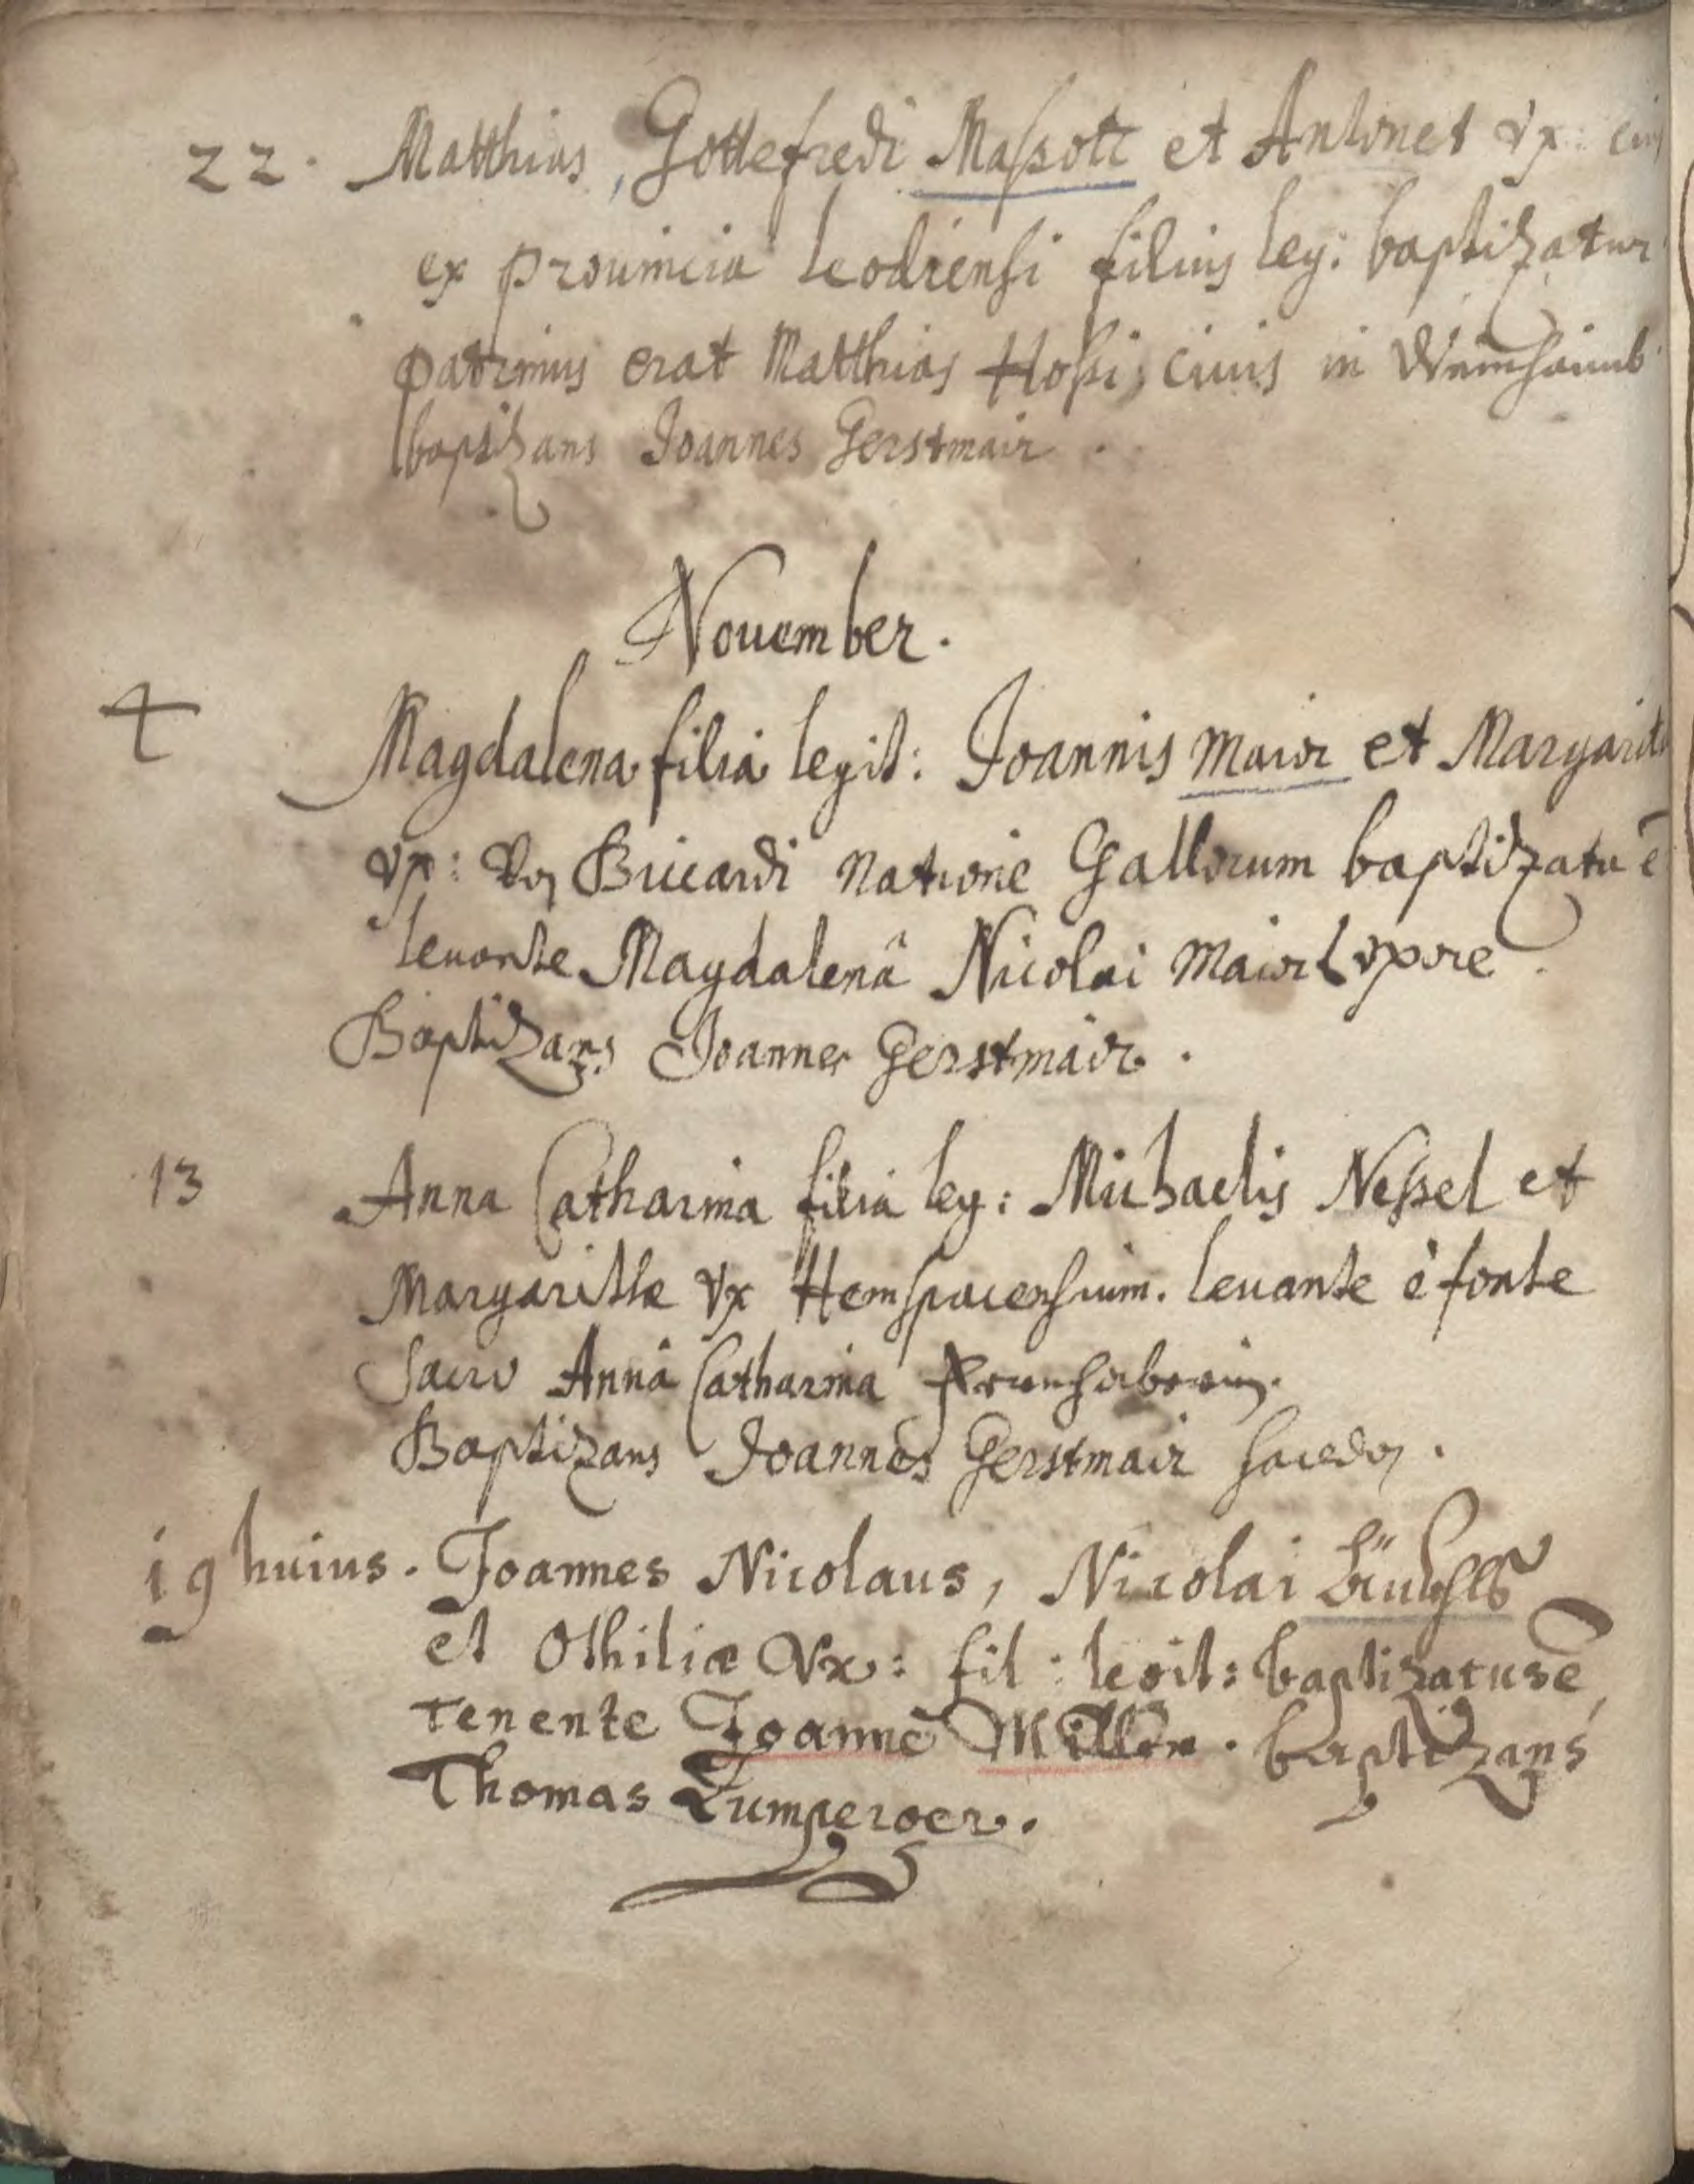 22. Matthias, Gottefredi Massoti et Antonet vx: eius
ex prouincia leodiensi filius leg: baptizatur
patrinus erat Matthias Hossi, ciuis in
baptizans Joannes Gerstmair.
Nouember.
4 Magdalena filia legit: Joannis Maior et Margarita
vx: Bricardi natione Gallorum baptizata ē
leuante Magdalenâ Nicolai Maior vxore.
Baptizans Joannes Gerstmair.
13 Anna Catharina filia leg: Michaelis Nessel et
Margarithæ Vx Hemspacensium. leuante è fonte
sacro Annâ Catharina
Baptizans Joannes Gerstmair sacerdos.
19 huius. Joannes Nicolaus, Nicolai
et Othiliæ Vx: fil: legit: baptizatus ē,
tenente Joanne Miller. baptizans
Thomas Lumperger.